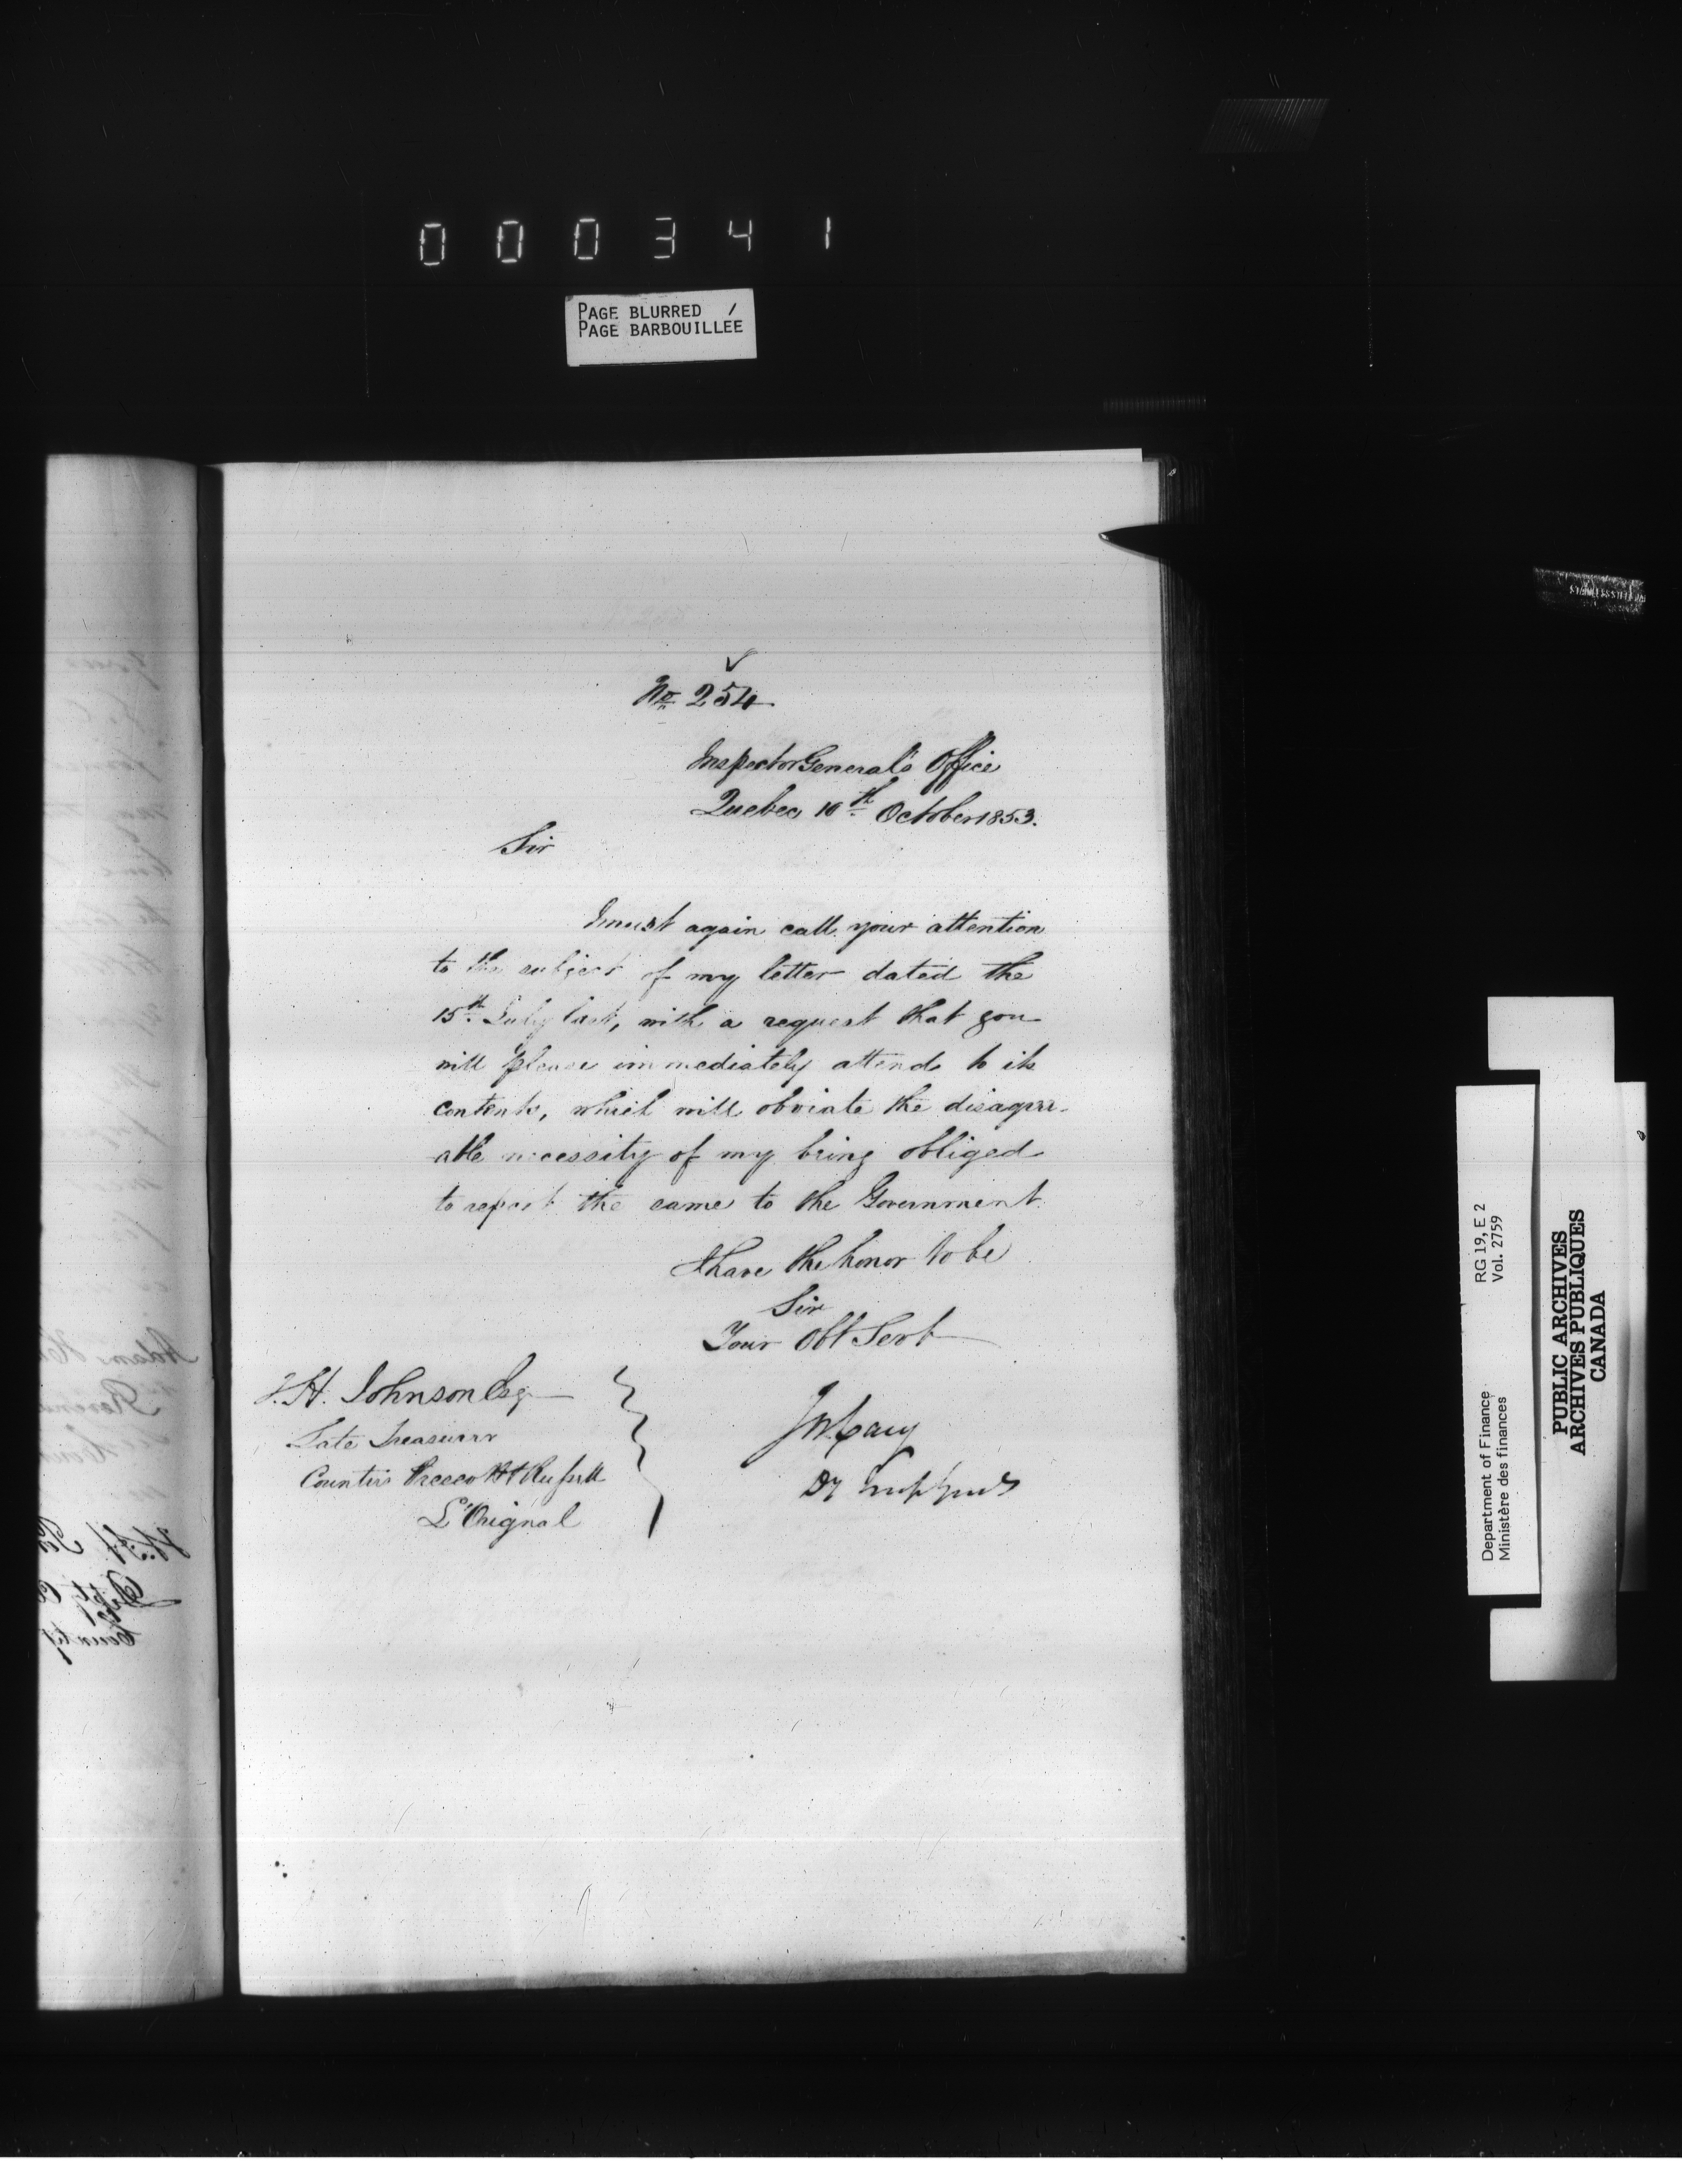 000341
PAGE BLURRED /
PAGE BARBOUILLÉE
No 254
Inspector General's Office
Quebec 10th October 1853.
Sir
I must again call your attention
to the subject of my letter dated the
15th July last, with a request that you
will please immediately attend to its
contents, which will obviate the disagree-
able necessity of my being obliged
to report the same to the Government.
I have the honor to be
Sir
Your Obt Servt
H. Johnson Esq
Late Treasurer
Counties Prescott & Russell
L'Orignal
J W Cary
Dy Insp Genl
RG 19, E 2
Vol. 2759
Department of Finance
Ministère des finances
PUBLIC ARCHIVES
ARCHIVES PUBLIQUES
CANADA